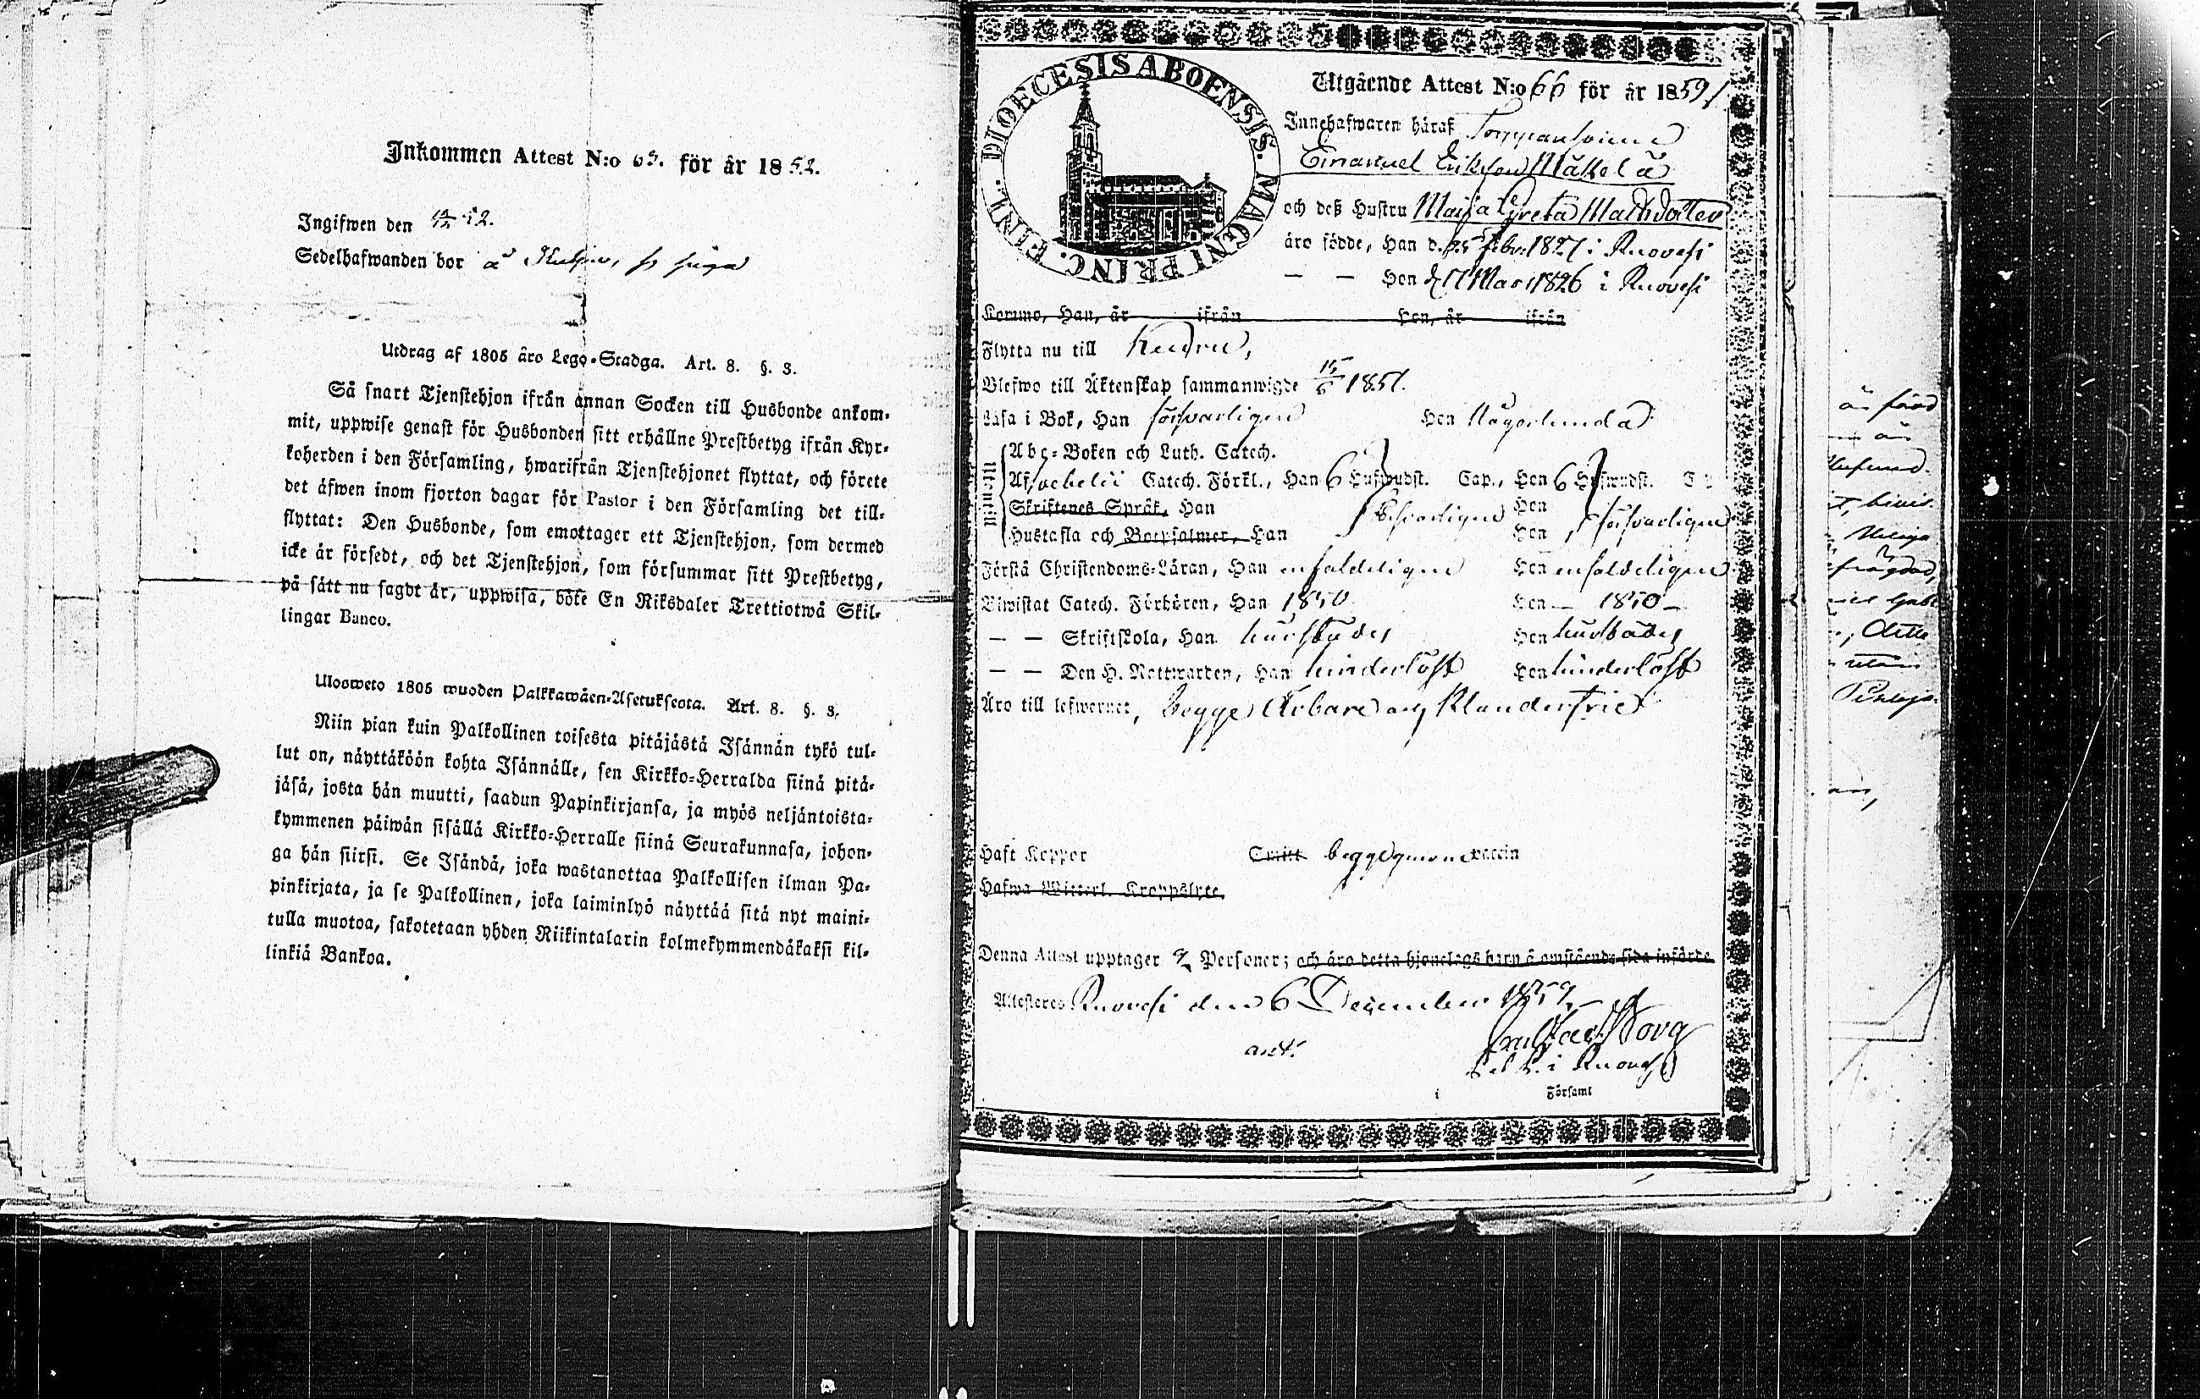 Inkommen Attest N:o 63. för år 1852.
Ingifwen den 52.
Sedelhafwanden bor å
Utdrag af 1805 åro Lego-Stadga. Art. 8. §. 3.
Så snart Tjenstehjon ifrån annan Socken till Husbonde ankom-
mit, uppwise genast för Husbonden sitt erhållne Prestbetyg ifrån Kyr-
koherden i den Församling, hwarifrån Tjenstehjonet flyttat, och förete
det äfwen inom fjorton dagar för Pastor i den Församling det till-
flyttat: Den Husbonde, som emottager ett Tjenstehjon, som dermed
icke är försedt, och det Tjenstehjon, som försummar sitt Prestbetyg,
på sätt nu sagdt är, uppwisa, böte En Riksdaler Trettiotwå Skil-
lingar Banco.
Ulosweto 1805 wuoden Palkkawäen-Asetuksesta. Art. 8. §. 3.
Niin pian kuin Palkollinen toisesta pitäjästä Isännän tykö tul-
lut on, näyttäköön kohta Isännälle, sen Kirkko-Herralda siinä pitä-
jäsä, josta hän muutti, saadun Papinkirjansa, ja myös neljäntoista-
kymmenen päiwän sisällä Kirkko-Herralle siinä Seurakunnasa, johon-
ga hän siirsi. Se Isändä, joka wastanottaa Palkollisen ilman Pa-
pinkirjata, ja se Palkollinen, joka laiminlyö näyttää sitä nyt maini-
tulla muotoa, sakotetaan yhden Riikintalarin kolmekymmendäkaksi kil-
linkiä Bankoa.
DIOECESIS ABOENSIS. MAGNI PRINC. FINL.
Utgående Attest N:o 66 för år 1851
Innehafwaren häraf
Emanuel Eriksson Mäkelä
och deß Hustru Maija Greta Mattsdotter
äro födde, Han d. 25 Febr. 1827 i Ruovesi
— — Hon d. 17 Mars 1826 i Ruovesi
Kommo, Han, år ifrån Hon, år ifrån
Flytta nu till Keuru,
Blefwo till Äktenskap sammanwigde 15/6 1851.
Läsa i Bok, Han försvarligen Hon Någorlunda
Utantill
Abc-Boken och Luth. Catech.
Af Svebelii Catech. Förkl., Han 6 Hufwudst. Cap., Hon 6 Hufwudst.
Skriftenes Språk, Han försvarligen Hon försvarligen
Hustafla och Botpsalmer, Han Hon
Förstå Christendoms-Läran, Han enfaldeligen Hon enfaldeligen
Biwistat Catech. Förhören, Han 1850 Hon — 1850 —
— — Skriftskola, Han Hon
— — Den H. Nattwarden, Han hinderlöst Hon hinderlöst
Äro till lefwernet, begge Ärbare och Klanderfrie
Haft Koppor Smitt begge genom vaccin
Hafwa Witterl. Kroppslyte,
Denna Attest upptager 2 Personer; och äro detta hjonelags barn å omstående sida införde
Attesteras Ruovesi den 6 December 1851.
i Ruovesi
i Församl